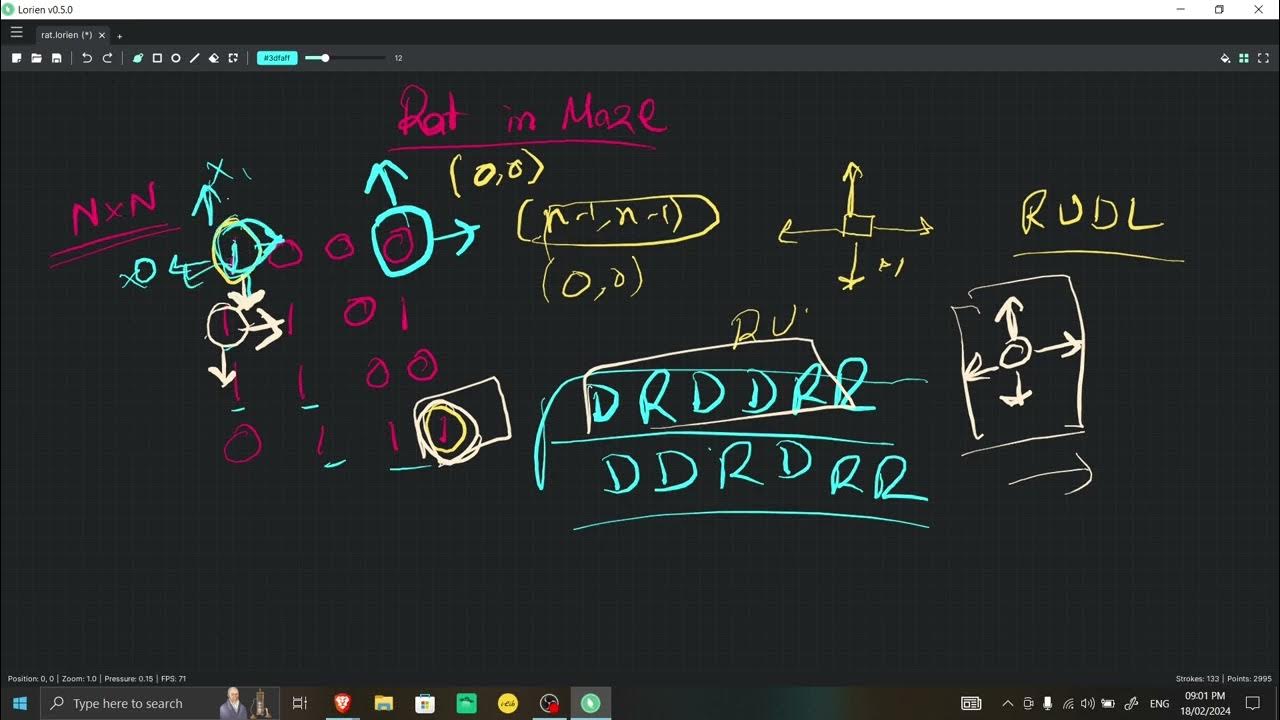 Lorien v0.5.0
rat.lorien (*)
#3dfaff 12
Rat in Maze
(0,0)
N×N
(n-1,n-1)
RUDL
x 0
1 0 0 0
(0,0)
1 1 0 1
RU
1 1 0 0
DRDDRR
0 1 1 1
DDRDRR
Position: 0, 0 | Zoom: 1.0 | Pressure: 0.15 | FPS: 71
Strokes: 133 | Points: 2995
Type here to search
ENG
09:01 PM
18/02/2024